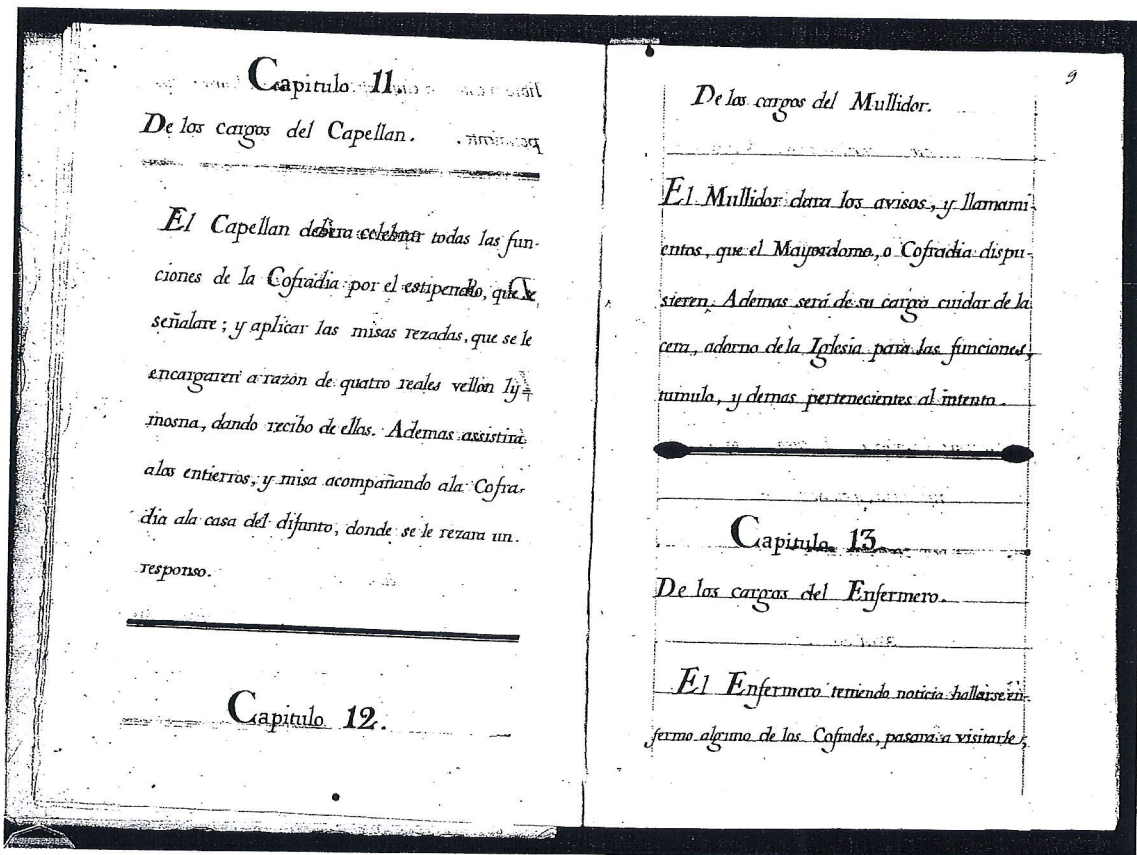 Capitulo 11.
De los cargos del Capellan.
El Capellan debera celebrar todas las fun-
ciones de la Cofradia por el estipendio, que se
señalare; y aplicar las misas rezadas, que se le
encargaren a razon de quatro reales vellon ly-
mosna, dando recibo de ellas. Ademas assistirà
alos entierros, y misa acompañando ala Cofra-
dia ala casa del difunto, donde se le rezara un
responso.
Capitulo 12.
9
De los cargos del Mullidor.
El Mullidor dara los avisos, y llamami-
entos, que el Mayordomo, o Cofradia dispu-
sieren. Ademas será de su cargo cuidar de la
cera, adorno de la Iglesia para las funciones,
tumulo, y demas pertenecientes al intento.
Capitulo 13.
De los cargos del Enfermero.
El Enfermero teniendo noticia hallarse en-
fermo alguno de los Cofrades, pasará a visitarle,